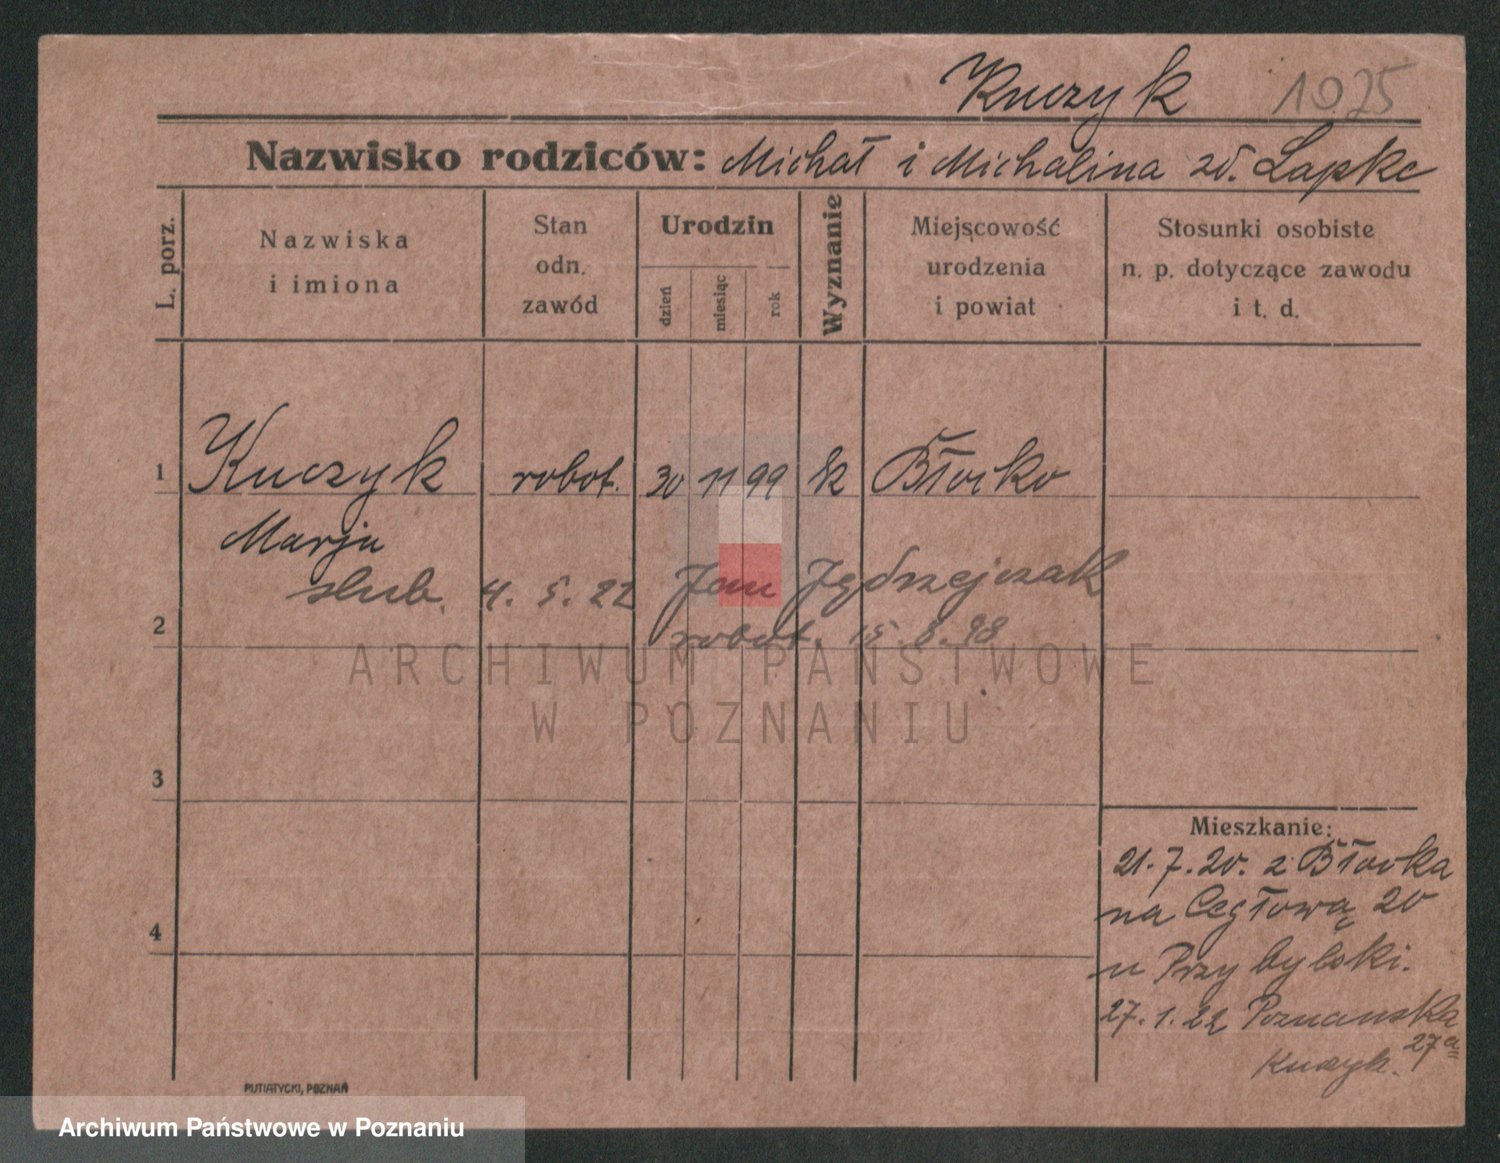 Kuczyk 1925
Nazwisko rodziców: Michał i Michalina zd. Lapke
L. porz.
Nazwiska
i imiona
Stan
odn.
zawód
Urodzin
dzień
miesiąc
rok
Wyznanie
Miejscowość
urodzenia
i powiat
Stosunki osobiste
n. p. dotyczące zawodu
i t. d.
1 Kuczyk robot. 30 11 99 k Błocko
Marja
ślub. 4. 5. 22 Jan Jędrzejczak
2 robot. 15. 8. 98
ARCHIWUM PAŃSTWOWE
W POZNANIU
3
4
Mieszkanie:
21. 7. 20. z Błocka
na Cegłową 20
u Przybylski.
27. 1. 22 Poznanska
27a
Kuczyk.
PUTIATYCKI, POZNAŃ
Archiwum Państwowe w Poznaniu